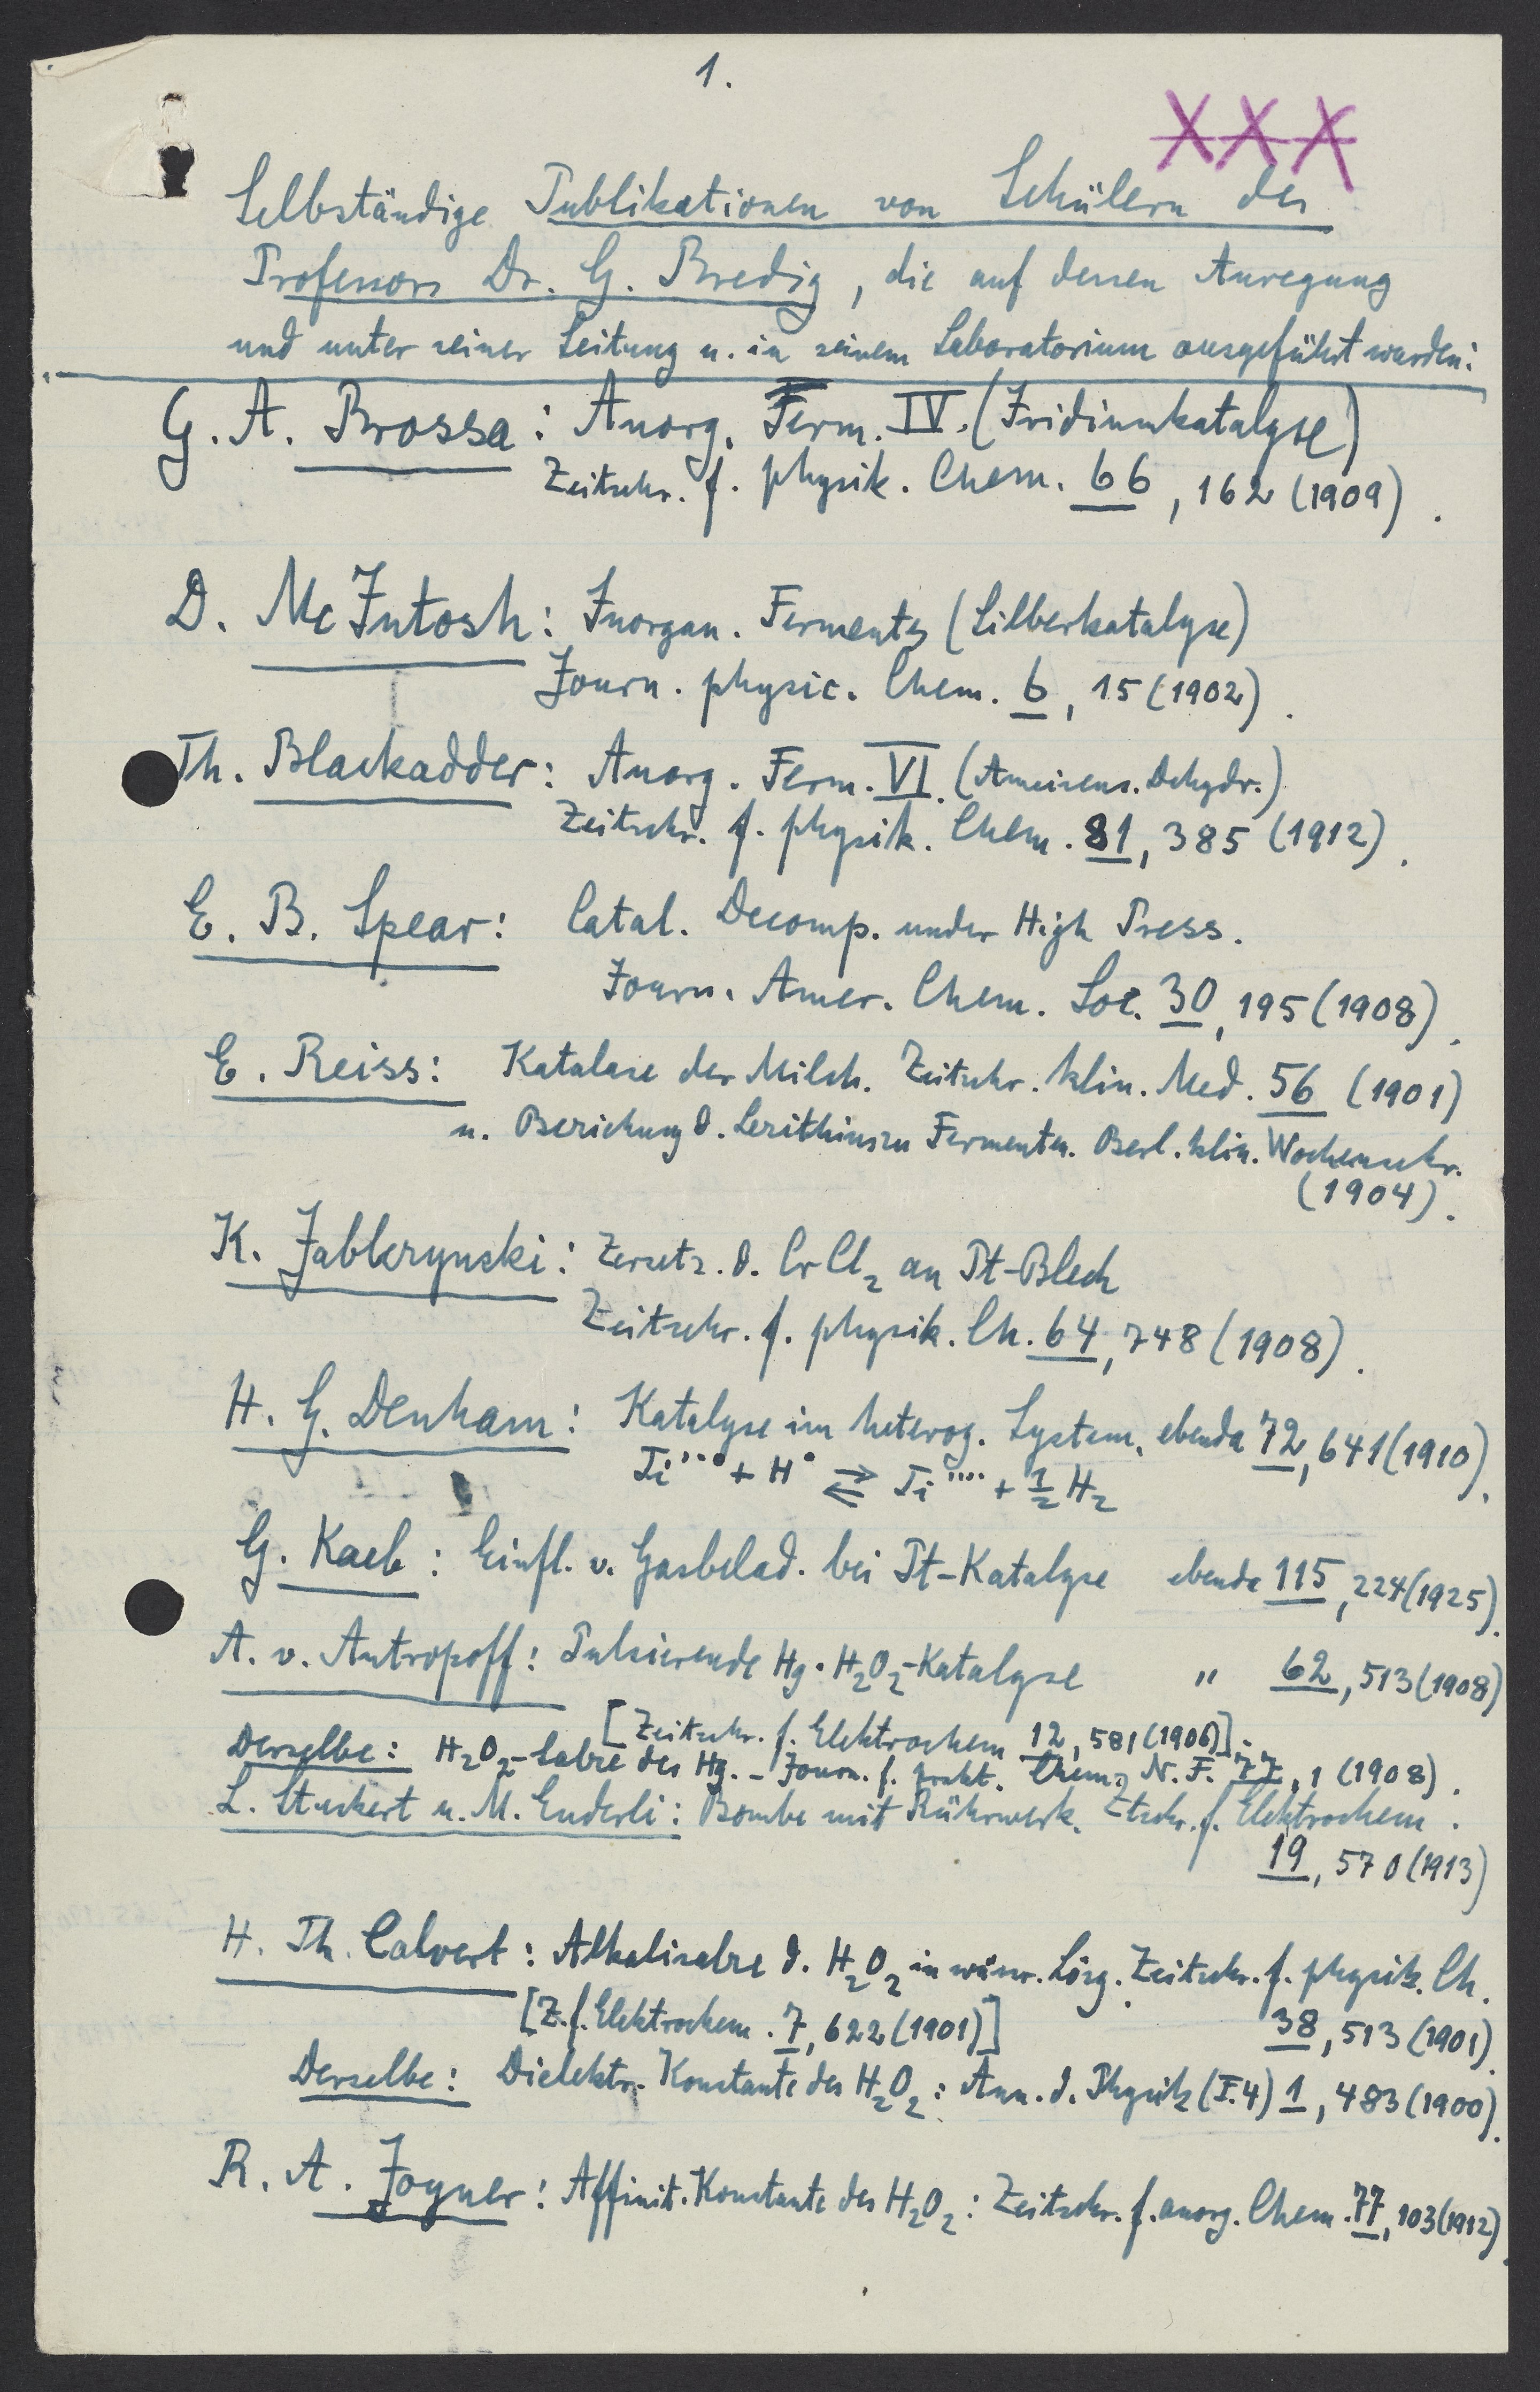 1.
XXX
Selbständige Publikationen von Schülern des
Professors Dr. G. Bredig, die auf dessen Anregung
und unter seiner Leitung u. in seinem Laboratorium ausgeführt wurden:
G. A. Brossa: Anorg. Ferm. IV. (Iridiumkatalyse)
Zeitschr. f. physik. Chem. 66, 162 (1909).
D. Mc Intosh: Inorgan. Ferments (Silberkatalyse)
Journ. physic. Chem. 6, 15 (1902).
Th. Blackadder: Anorg. Ferm. VI. (Ameisens. Dehydr.)
Zeitschr. f. physik. Chem. 81, 385 (1912).
E. B. Spear: Catal. Decomp. under High Press.
Journ. Amer. Chem. Soc. 30, 195 (1908).
E. Reiss: Katalase der Milch. Zeitschr. klin. Med. 56 (1901)
u. Beziehung d. Lecithins zu Fermenten. Berl. klin. Wochenschr.
(1904).
K. Jablczynski: Zersetz. d. CrCl₂ an Pt-Blech
Zeitschr. f. physik. Ch. 64, 748 (1908).
H. G. Denham: Katalyse im heterog. System, ebenda 72, 641 (1910).
Ti··· + H· ⇄ Ti···· + ½ H₂
G. Kaeb: Einfl. v. Gasbelad. bei Pt-Katalyse ebenda 115, 224 (1925).
A. v. Antropoff: Pulsierende Hg·H₂O₂-Katalyse " 62, 513 (1908)
[Zeitschr. f. Elektrochem 12, 581 (1906)].
Derselbe: H₂O₂-Salze des Hg. - Journ. f. prakt. Chem, N. F. 77, 1 (1908).
L. Stuckert u. M. Enderli: Bombe mit Rührwerk. Ztschr. f. Elektrochem.
19, 570 (1913)
H. Th. Calvert: Alkalisalze d. H₂O₂ in wässr. Lösg. Zeitschr. f. physik. Ch.
[Z. f. Elektrochem. 7, 622 (1901)] 38, 513 (1901).
Derselbe: Dielektr. Konstante des H₂O₂: Ann. d. Physik (F. 4) 1, 483 (1900).
R. A. Joyner: Affinit. Konstante des H₂O₂: Zeitschr. f. anorg. Chem. 77, 103 (1912).